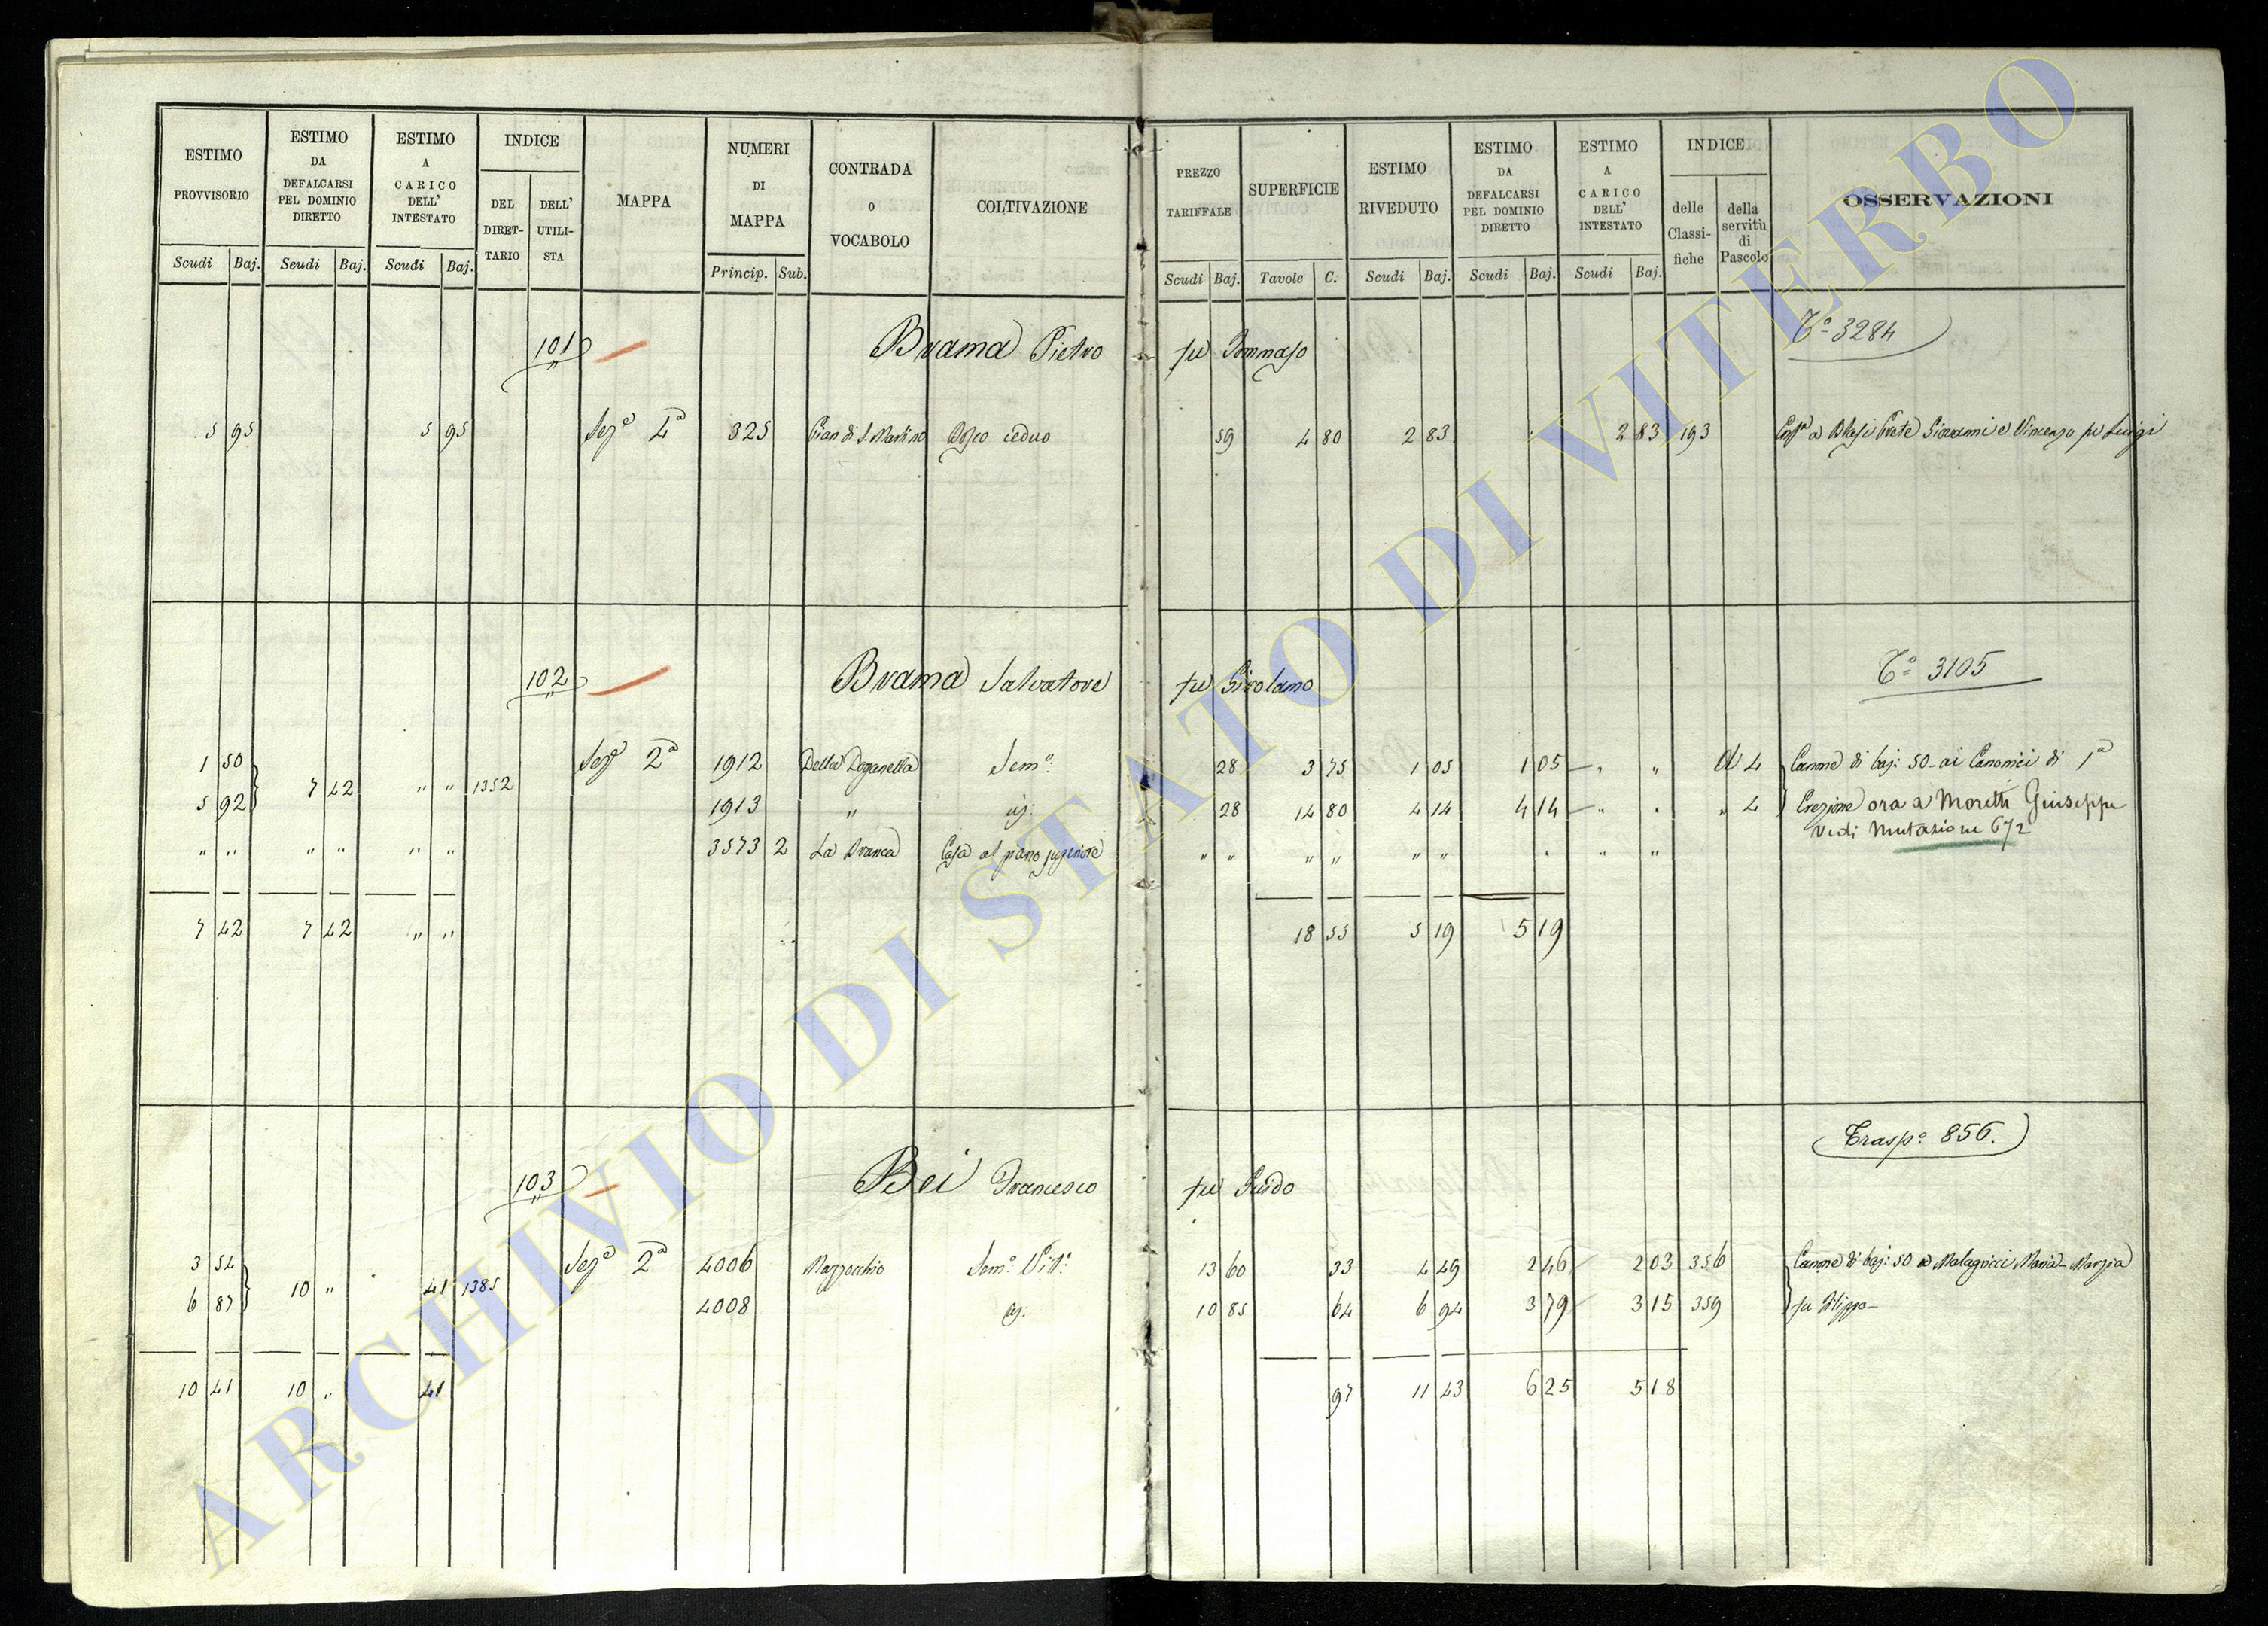 ESTIMO PROVVISORIO
Scudi Baj.
ESTIMO DA DEFALCARSI PEL DOMINIO DIRETTO
Scudi Baj.
ESTIMO A CARICO DELL' INTESTATO
Scudi Baj.
INDICE
DEL DIRET-TARIO
DELL' UTILI-STA
MAPPA
NUMERI DI MAPPA
Princip. Sub.
CONTRADA O VOCABOLO
COLTIVAZIONE
PREZZO TARIFFALE
Scudi Baj.
SUPERFICIE
Tavole C.
ESTIMO RIVEDUTO
Scudi Baj.
ESTIMO DA DEFALCARSI PEL DOMINIO DIRETTO
Scudi Baj.
ESTIMO A CARICO DELL' INTESTATO
Scudi Baj.
INDICE
delle Classi-fiche
della servitù di Pascolo
OSSERVAZIONI
101 Brama Pietro fu Tommaso Tº 3284
5 95 5 95 Sezª 4ª 325 Pian di S. Martino Bosco ceduo 59 4 80 2 83 2 83 193 a Blasi Giovanni e Vincenzo fu Luigi
102 Brama Salvatore fu Girolamo Tº 3105
1 50 Sezª 2ª 1912 Della Doganella Semº 28 3 75 1 05 1 05 " d 4 Canone di baj: 50 - ai Canonici di 1ª
7 42 " " 1352
5 92 1913 " 28 14 80 4 14 4 14 " " " 4 Erezione ora a Moretti Giuseppe
Vedi Mutazione 672
" " " " " " 3573 2 La Branca Casa al piano superiore " " " " " " " "
7 42 7 42 " " 18 55 5 19 5 19
Traspº 856.
103 Bei Francesco fu Guido
3 54 Sezª 2ª 4006 Mazzocchio Semº Vitº 13 60 33 4 49 2 46 2 03 356 Canone di baj: 50 a Malagricci Maria Marzia
10 " 41 1385
6 87 4008 10 85 64 6 94 3 79 3 15 359 fu Filippo -
10 41 10 " 41 97 11 43 6 25 5 18
ARCHIVIO DI STATO DI VITERBO